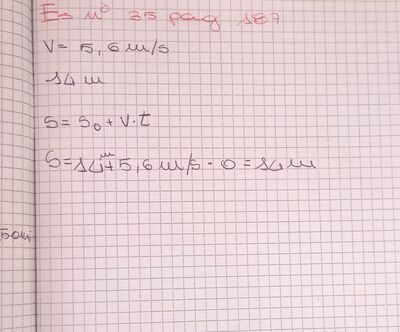 Es n° 35 pag 187
V = 5,6 m/s
14 m
S = S₀ + V·t
S = 14 m + 5,6 m/s · 0 = 14 m